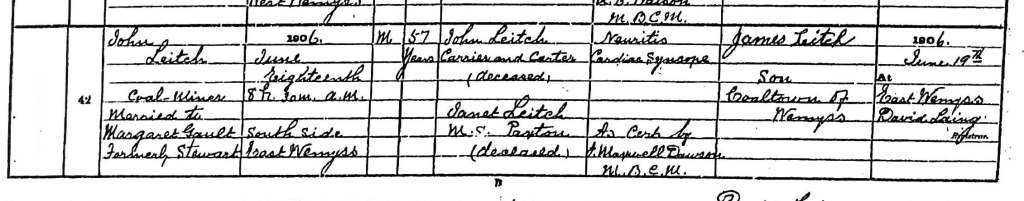 West Wemyss
M.B.C.M.
42
John
Leitch
Coal-Miner
Married to
Margaret Gault
Formerly Stewart
1906.
June
Eighteenth
8h. 0m. a.m.
South Side
East Wemyss
M.
57
Years
John Leitch
Carrier and Carter
(deceased)
Janet Leitch
M.S. Paxton
(deceased)
Neuritis
Cardiac Syncope
As Cert by
Maxwell Dawson
M.B.C.M.
James Leitch
Son
Coaltown of
Wemyss
1906.
June 19th
At
East Wemyss
David Laing
Registrar.